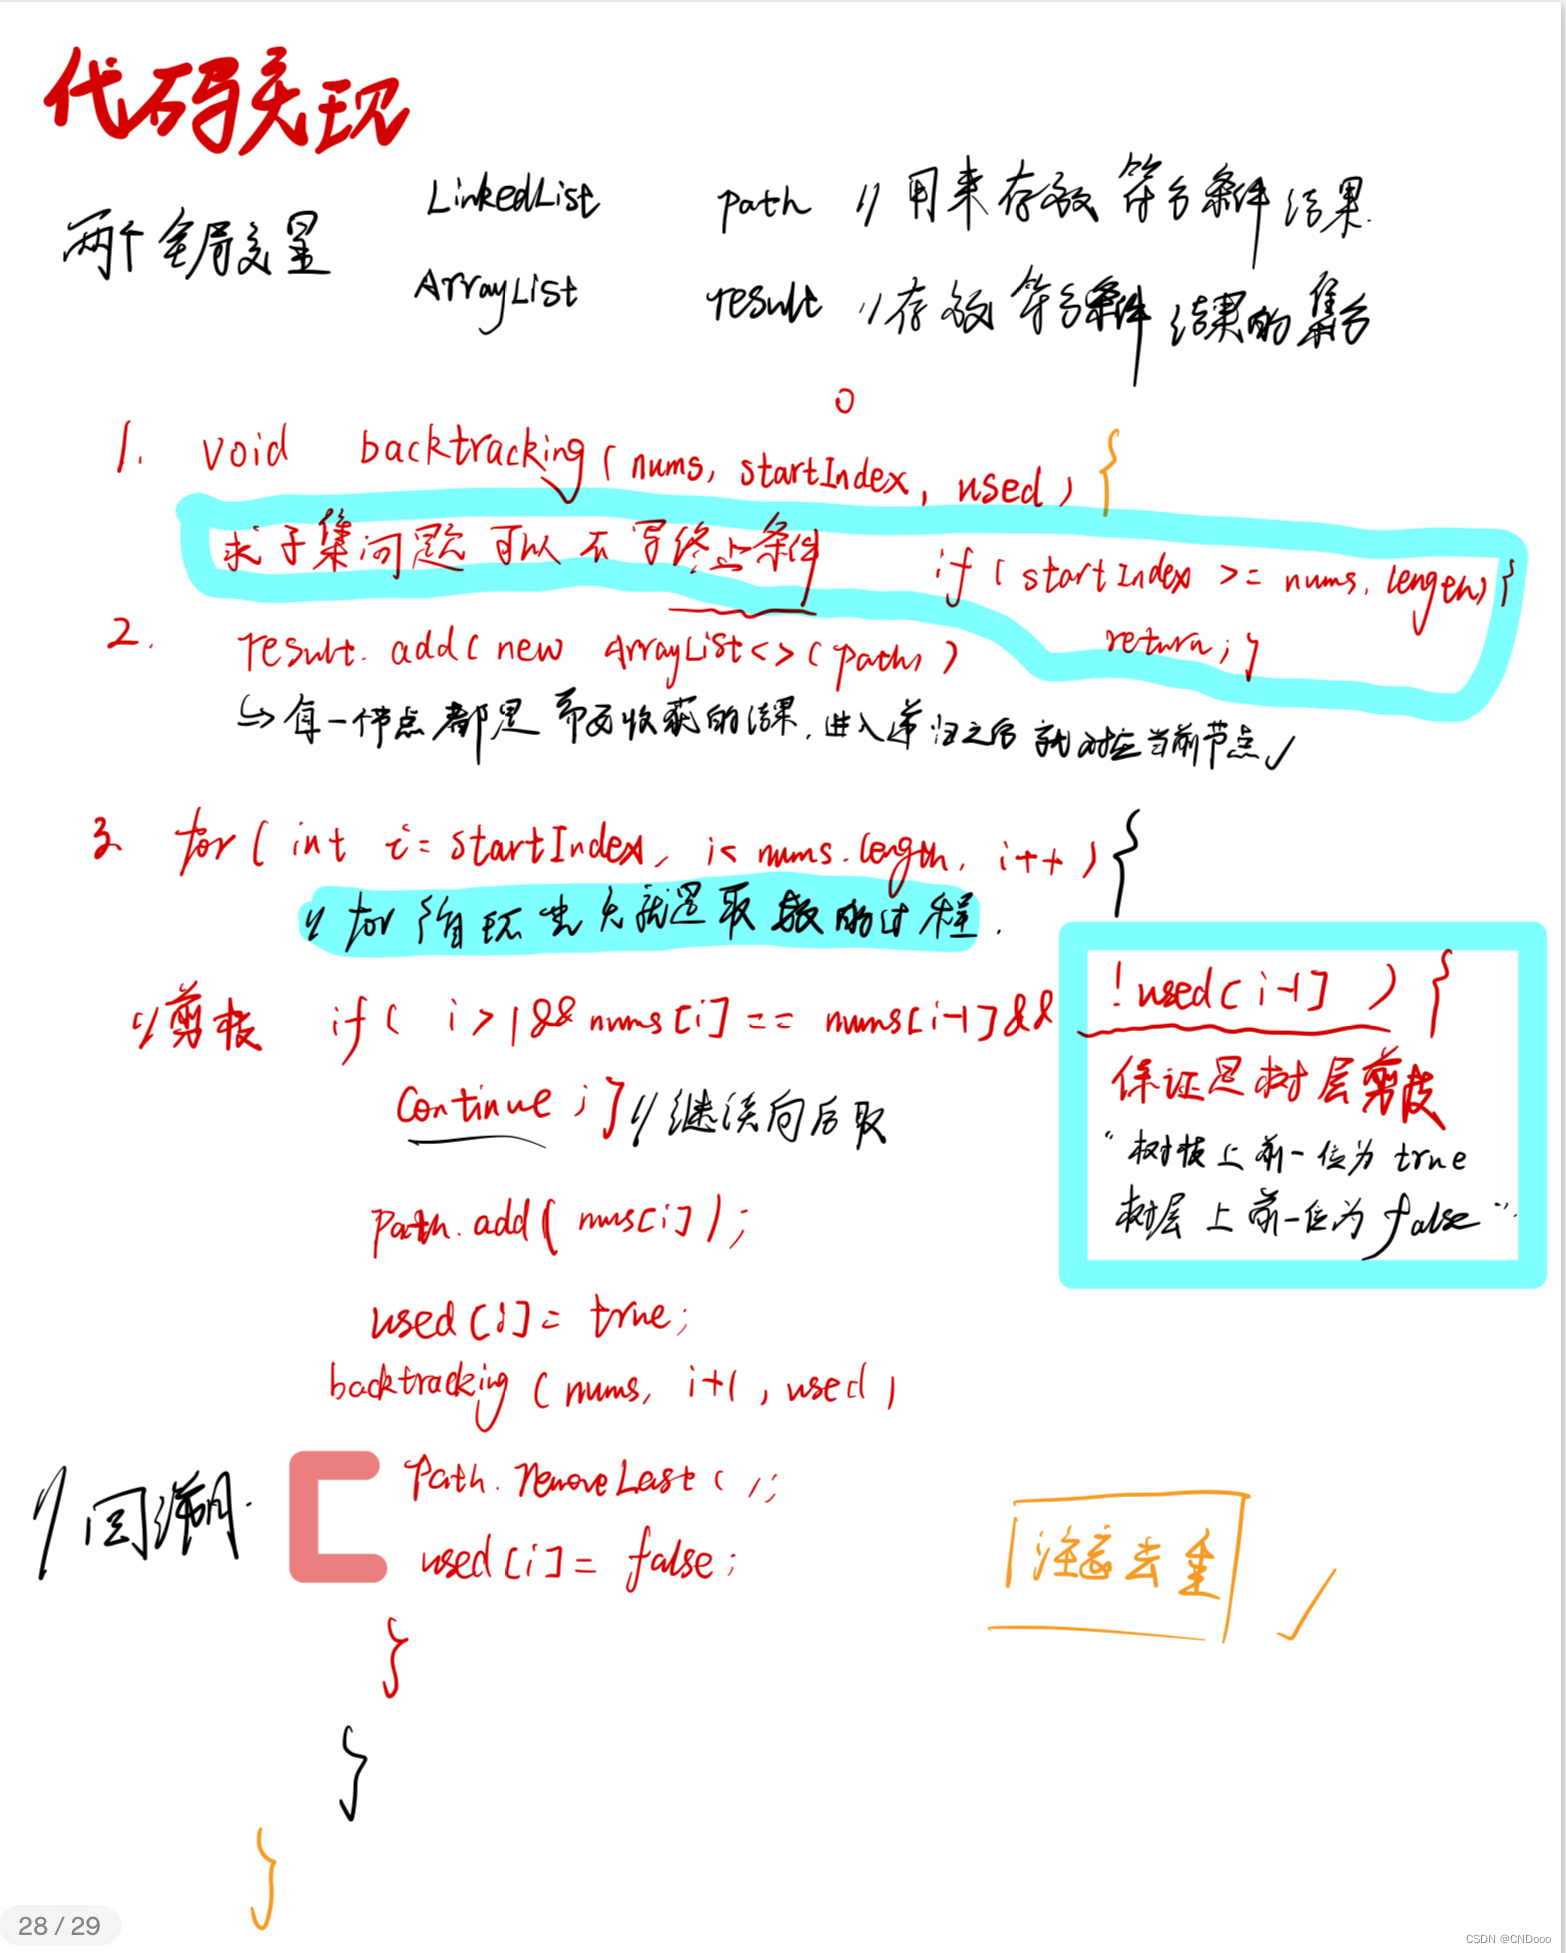 代码实现
LinkedList path // 用来存放符合条件结果.
两个全局变量
ArrayList result // 存放符合条件结果的集合
0
1. void backtracking(nums, startIndex, used) {
求子集问题可以不写终止条件 if(startIndex >= nums.length){
return;}
2. result.add(new ArrayList<>(path))
↳ 每一个节点都是需要收获的结果,进入递归之后就对应当前节点✓
3 for(int i=startIndex, i< nums.length, i++){
// for 循环里头就是取数的过程.
//剪枝 if( i>1&&nums[i]== nums[i-1]&& !used[i-1] ) {
continue;} //继续向后取
保证是树层剪枝
"树枝上前一位为 true
树层上前一位为 false"
path.add(nums[i]);
used[i]= true;
backtracking(nums, i+1, used)
//回溯.
path.removeLast();
used[i]= false;
注意去重 ✓
}
}
}
28 / 29
CSDN @CNDooo